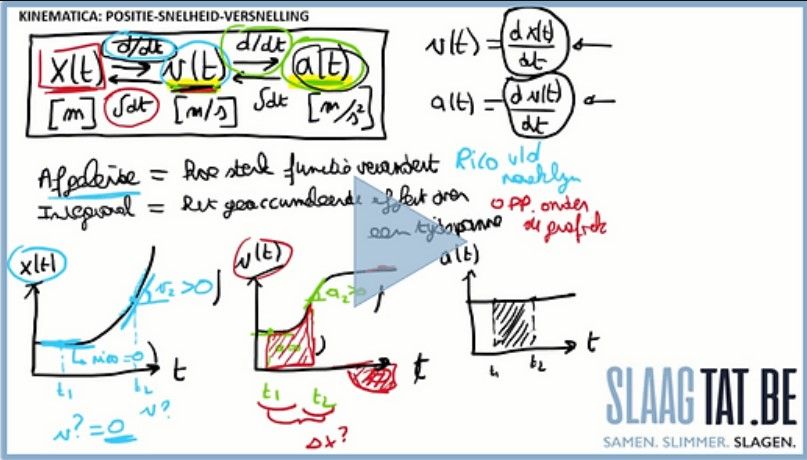 KINEMATICA: POSITIE-SNELHEID-VERSNELLING
d/dt d/dt
x(t) v(t) a(t)
∫dt ∫dt
[m] [m/s] [m/s²]
v(t) = dx(t)/dt
a(t) = dv(t)/dt
Afgeleide = Hoe sterk functie verandert
Rico v/d raaklijn
Integraal = Het geaccumuleerde effect over
een tijdspanne
opp. onder de grafiek
x(t)
v₂>0
↳ rico=0
t
t₁ t₂
v?=0 v?
v(t)
a₂>0
t
t₁ t₂
Δx?
a(t)
t
t₁ t₂
SLAAGTAT.BE
SAMEN. SLIMMER. SLAGEN.